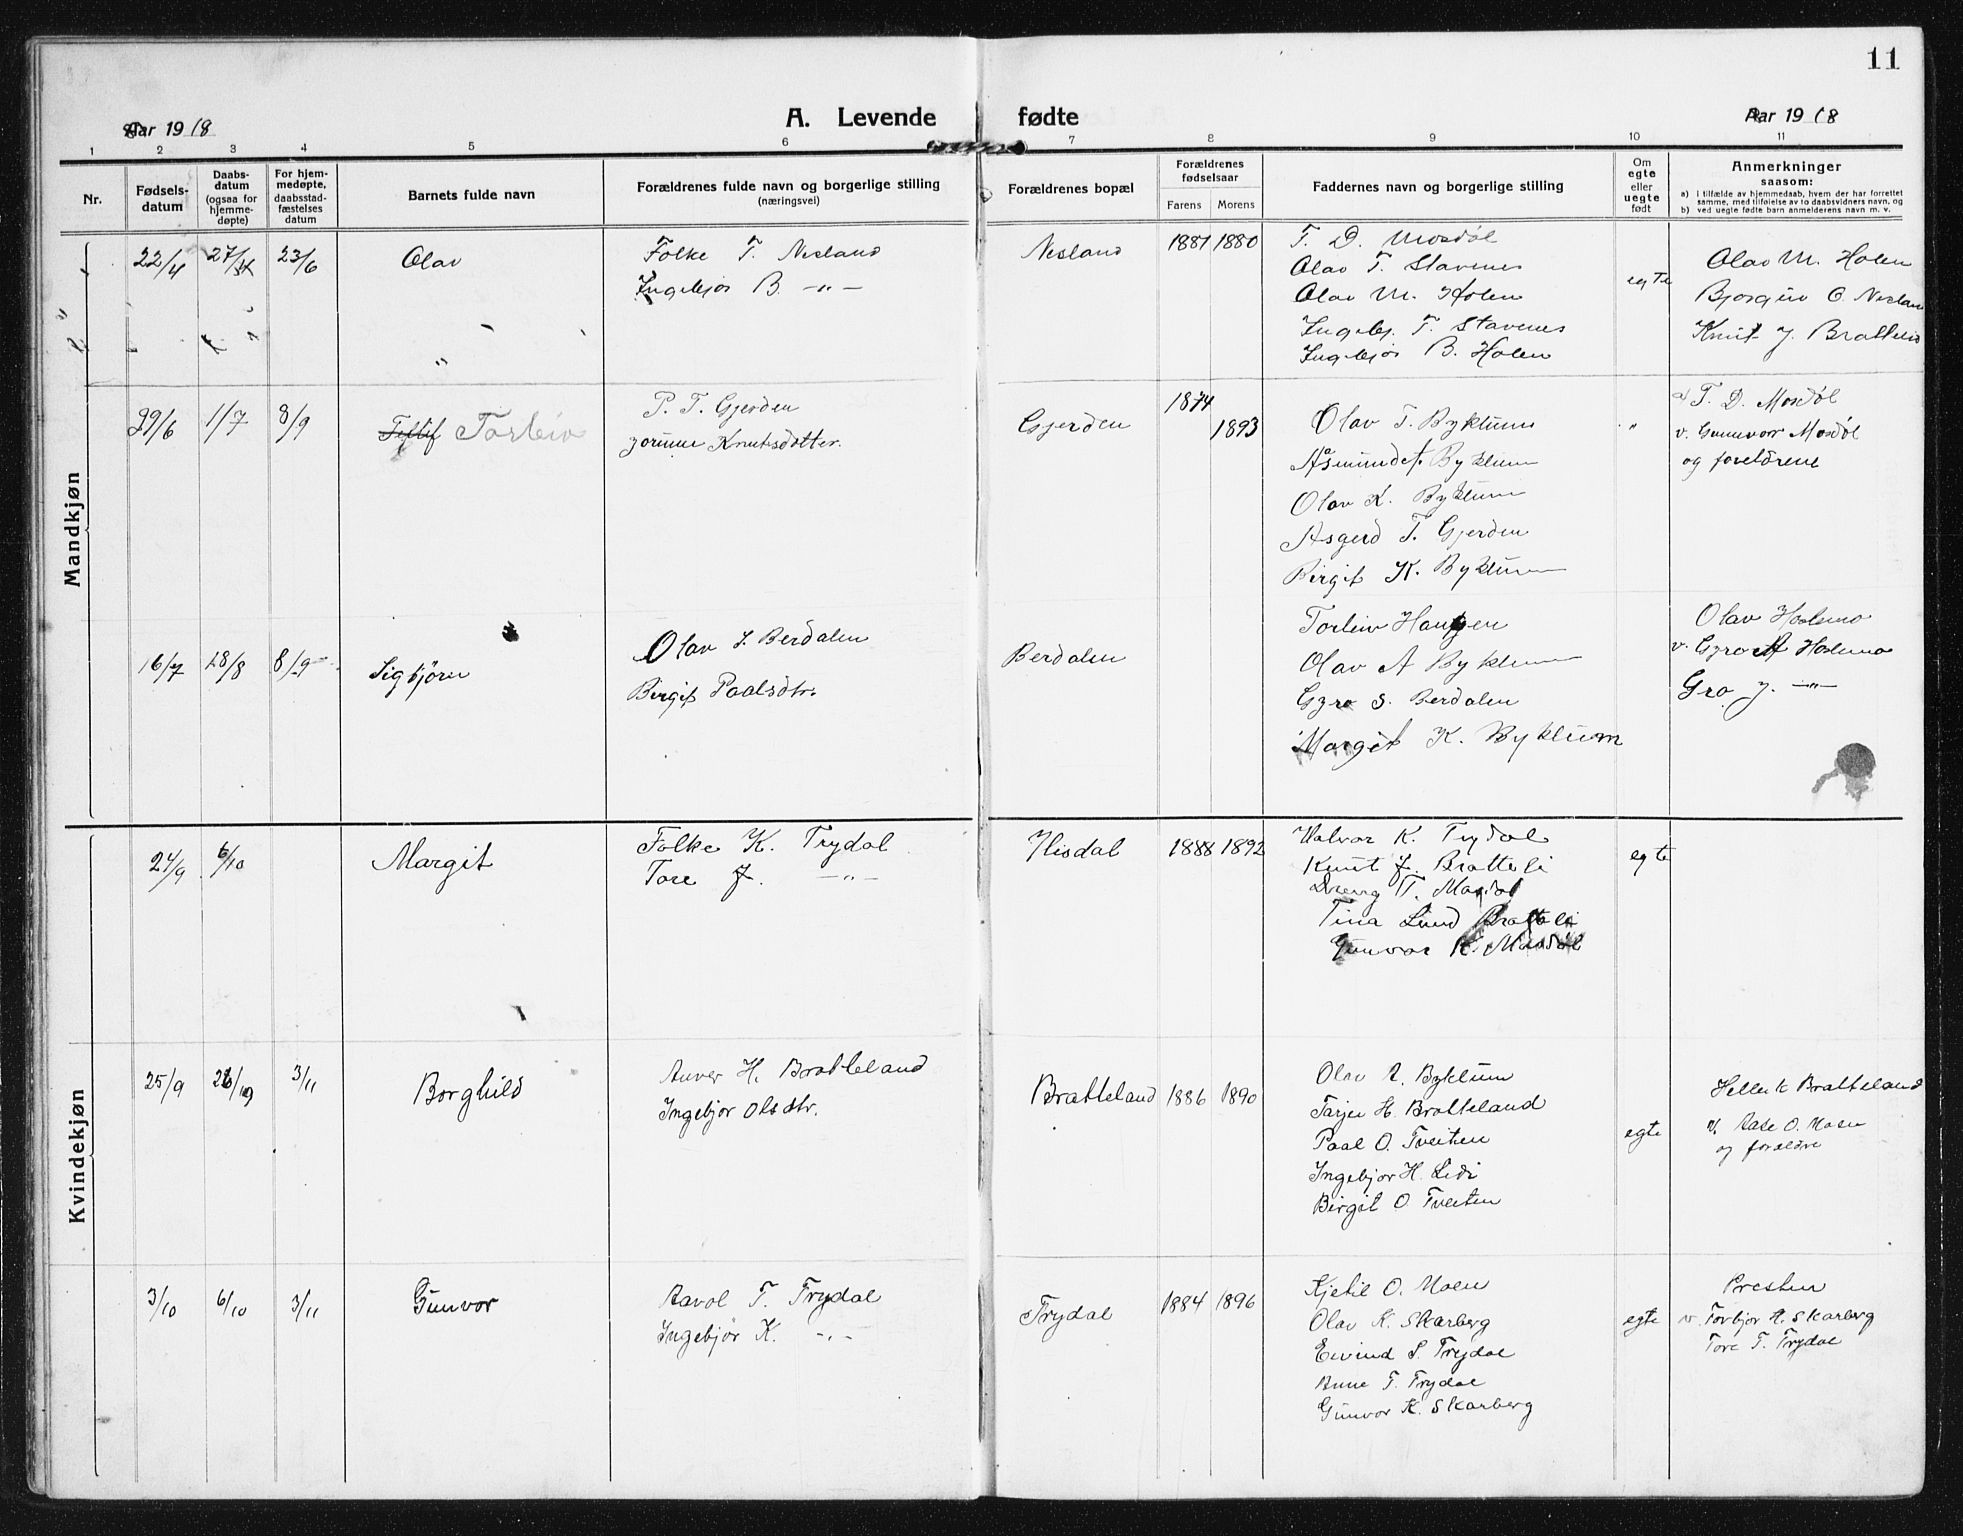 11
Aar 1918
A. Levende
fødte
Aar 1918
1 2 3 4 5 6 7 8 9 10 11
Nr.
Fødsels-
datum
Daabs-
datum
(ogsaa for
hjemme-
døpte)
For hjem-
medøpte,
daabsstad-
fæstelses
datum
Barnets fulde navn
Forældrenes fulde navn og borgerlige stilling
(næringsvei)
Forældrenes bopæl
Forældrenes
fødselsaar
Farens Morens
Faddernes navn og borgerlige stilling
Om
egte
eller
uegte
født
Anmerkninger
saasom:
a) i tilfælde av hjemmedaab, hvem der har forrettet
samme, med tilføielse av to daabsvidners navn, og
b) ved uegte fødte barn anmelderens navn m. v.
Mandkjøn
22/4 27/4 23/6
Olav
Folke T. Nesland
Ingebjør B. -"-
Nesland
1881 1880
T. D. Mosdøl
Olav T. Stavenes
Olav M. Holen
Ingebj. T. Stavenes
Ingebjør B. Holen
egte
Olav M. Holen
Bjorgúv O. Nesland
Knut J. Bratteli
29/6 1/7 8/9
Torleiv
P. T. Gjerden
Jorunne Knutsdotter.
Gjerden
1874
1893
Olav T. Byklum
Åsmund A. Byklum
Olav K. Byklum
Asgerd T. Gjerden
Birgit K. Byklum
"
a) T. D. Mosdøl
v. Gunnvor Mosdøl
og foreldrene
16/7 28/8 8/9
Sigbjørn
Olav S. Berdalen
Birgit Paalsdtr.
Berdalen
Torleiv Haugen
Olav A Byklum
Gyro S. Berdalen
Margit K. Byklum
Olav Hoslemo
v. Gyro A Hoslemo
Gro J. -"-
Kvindekjøn
24/9 6/10
Margit
Folke K. Trydal
Tore J. -"-
Flisdal
1888 1892
Halvor K. Trydal
Knut J. Bratteli
Dreng T. Mosdøl
Tina Lund Bratteli
Gunvor K. Mosdøl
egte
25/9 26/10 3/11
Borghild
Anver H. Bratteland
Ingebjor Olsdtr.
Bratteland
1886 1890
Olav A. Byklum
Tarjei H. Bratteland
Paal O. Tveiten
Ingebjor H. Lidi
Birgit O Tveiten
egte
Helle K Bratteland
v. Aase O. Moen
og forældre
3/10 6/10 3/11
Gunvor
Aavol T. Trydal
Ingebjør K. -"-
Trydal
1884 1896
Kjetil O. Moen
Olav K. Skarberg
Eivind S. Trydal
Anne T. Trydal
Gunvor K. Skarberg
egte
Presten
v. Torbjor H. Skarberg
Tore T. Trydal